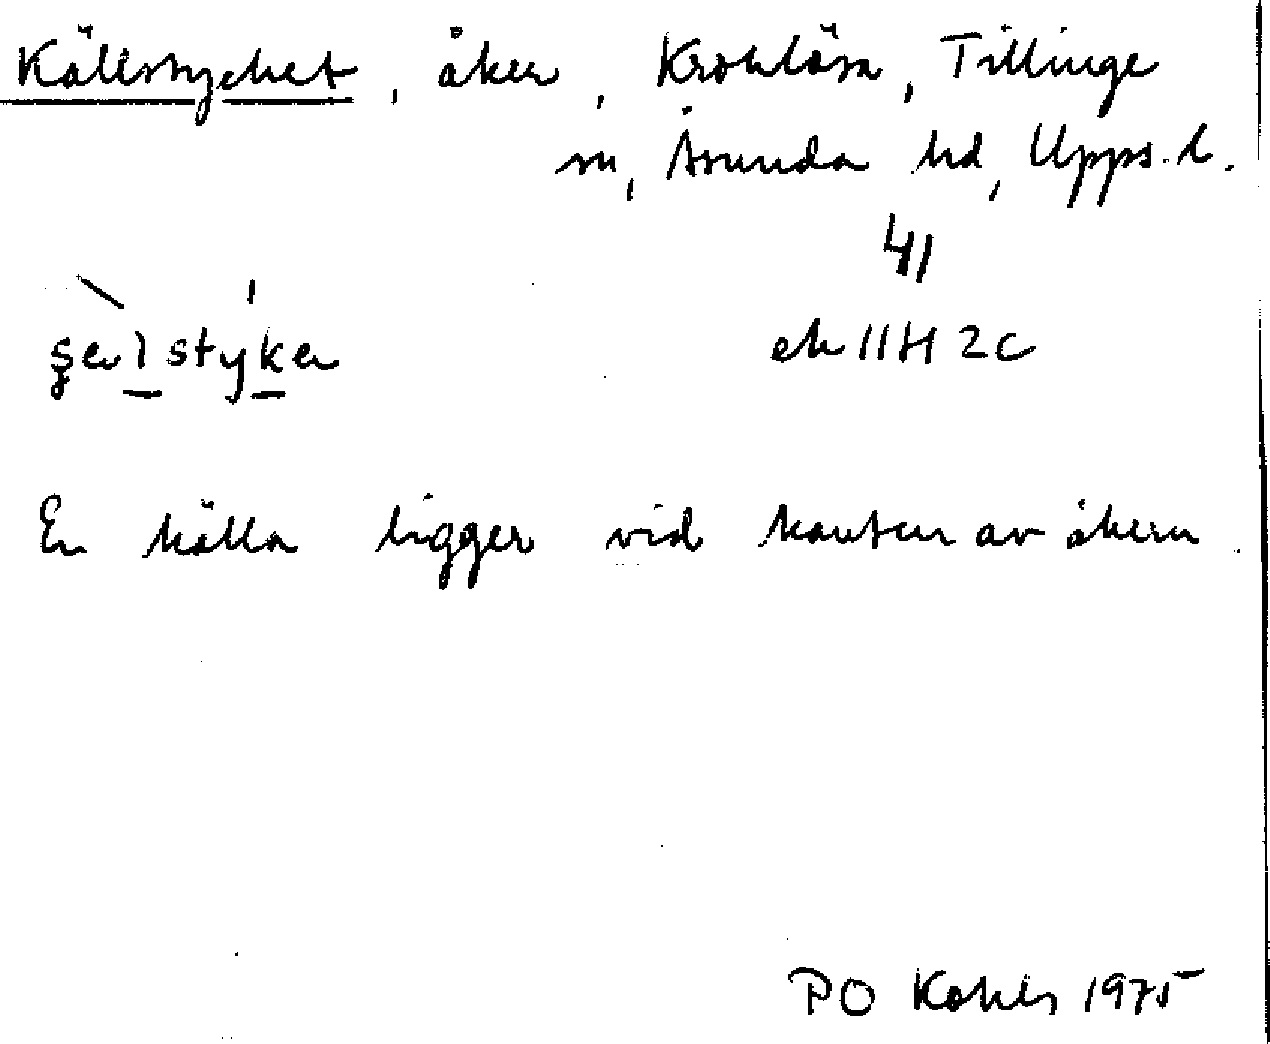 Källstycket, åker, Kroklösa, Tillinge
sn, Åsunda hd, Upps. l.
41
ek 11H 2c
En källa ligger vid kanten av åkern.
PO Kahls 1975